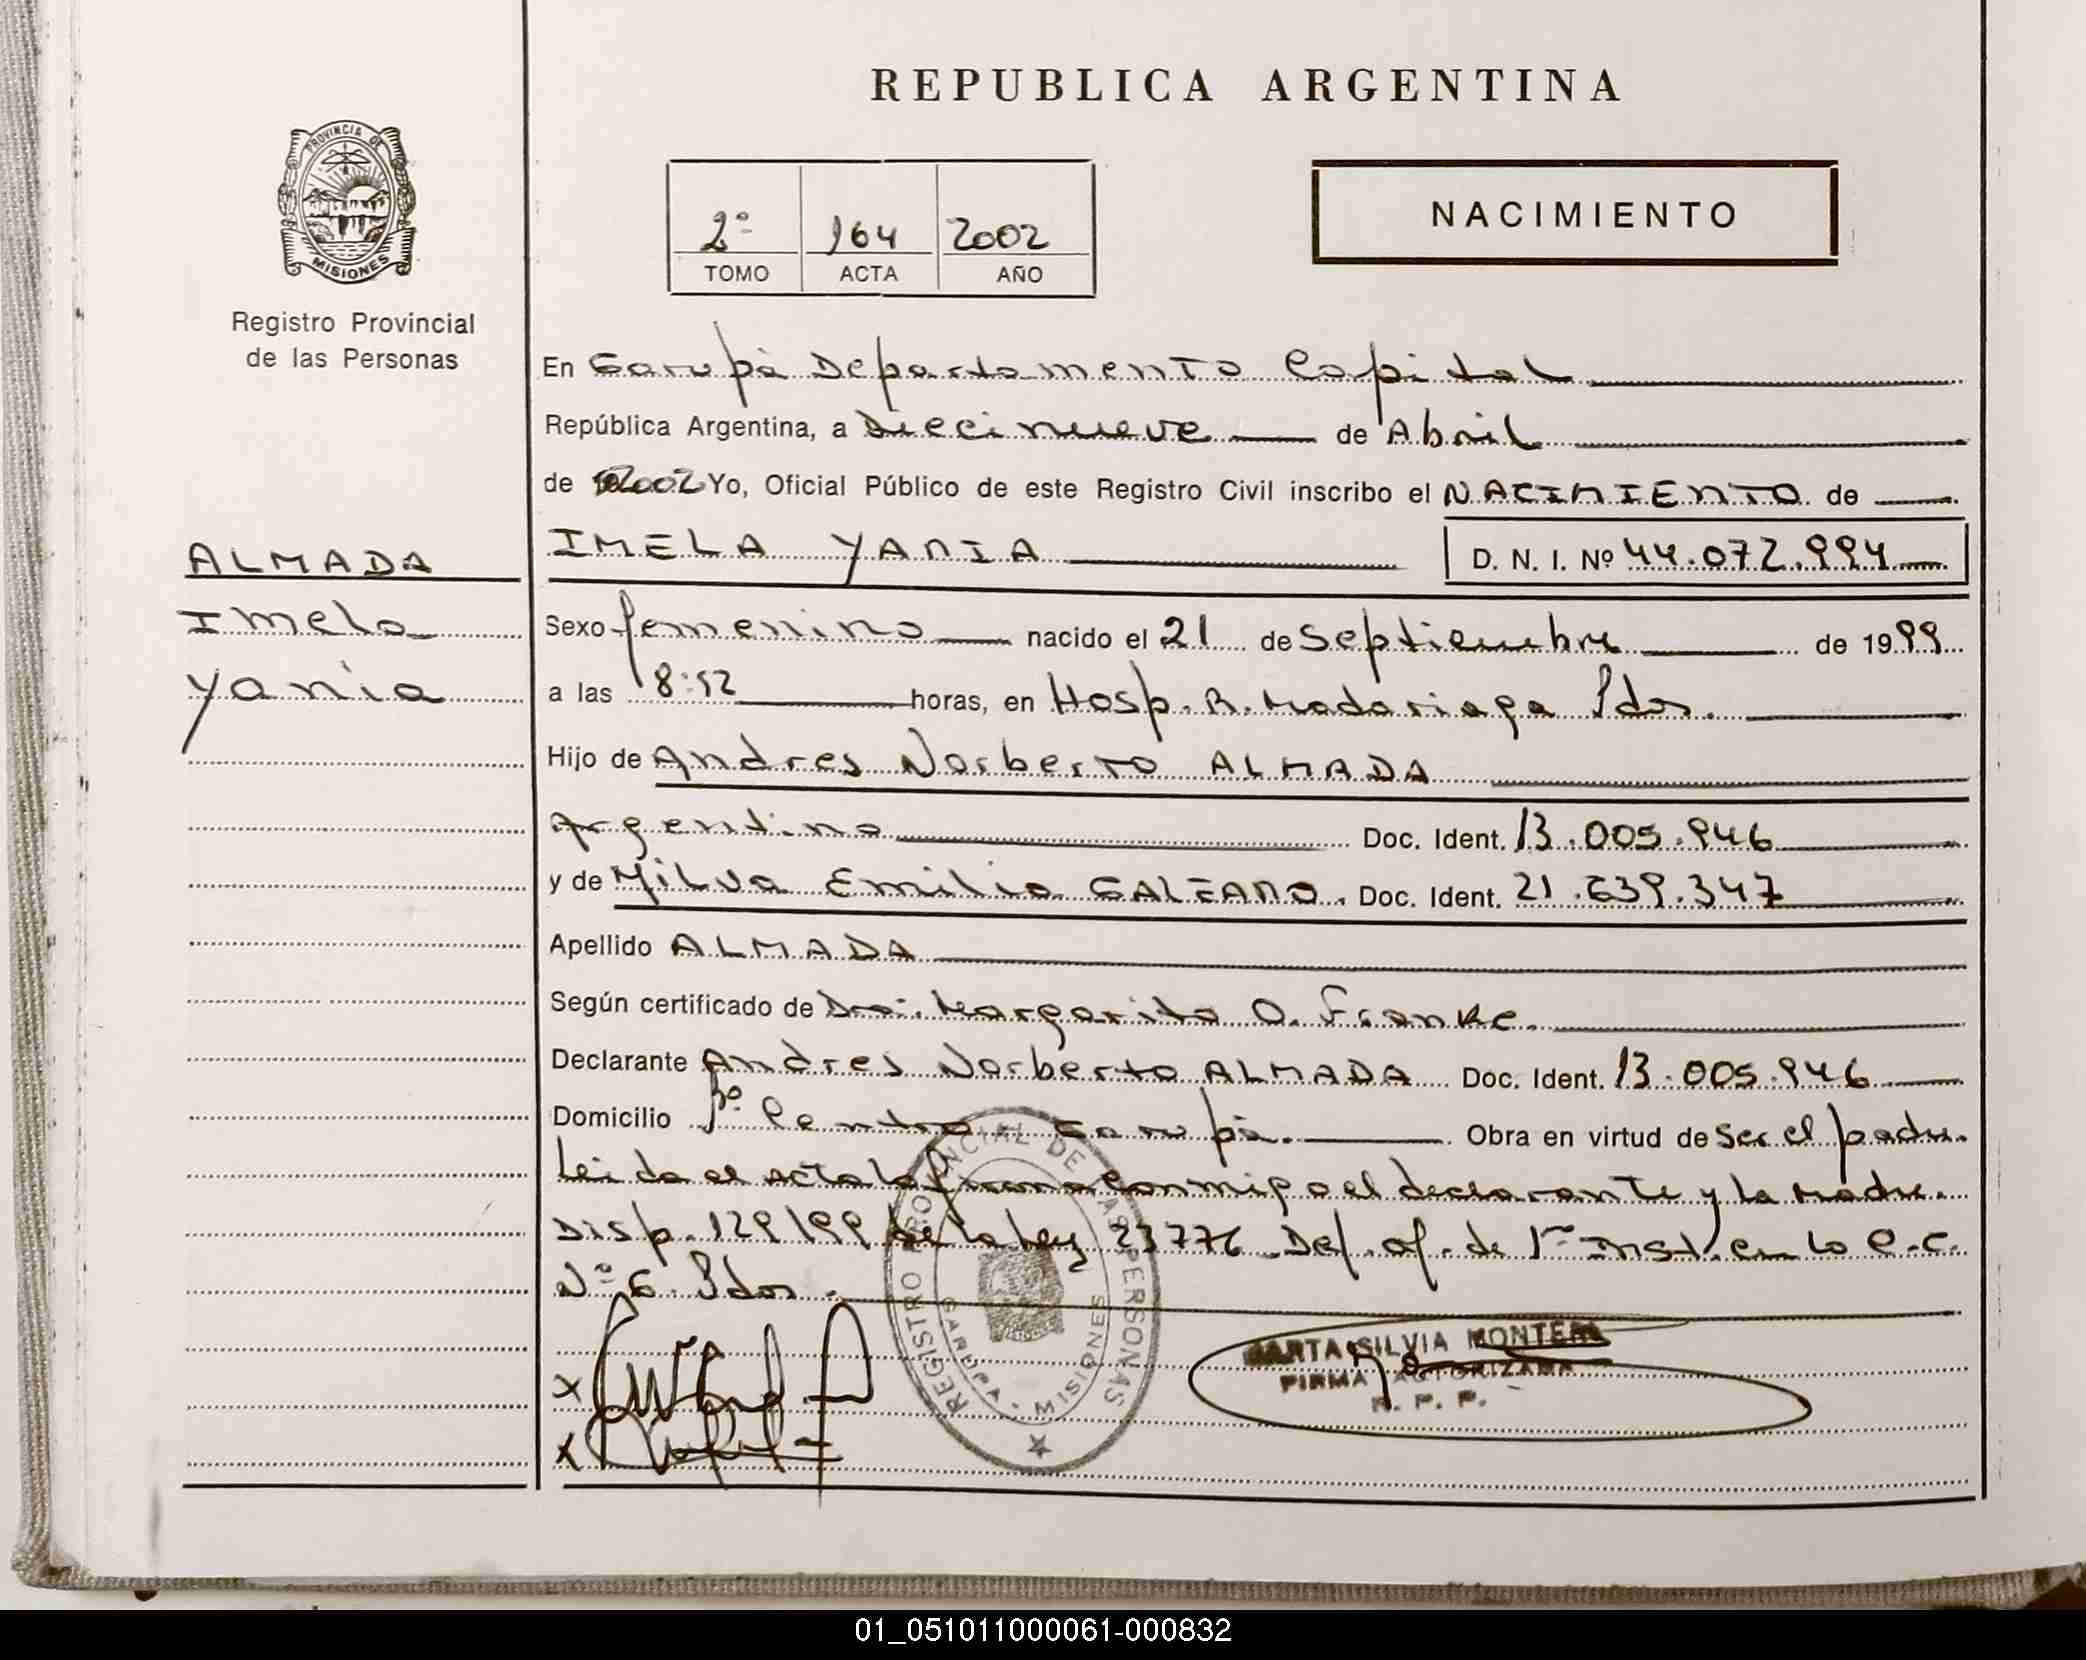 REPUBLICA ARGENTINA
PROVINCIA DE MISIONES
Registro Provincial
de las Personas
2º 164 2002
TOMO ACTA AÑO
NACIMIENTO
En Garupá Departamento Capital
República Argentina, a Diecinueve de Abril
de 2002 Yo, Oficial Público de este Registro Civil inscribo el NACIMIENTO de
IMELA YANIA D. N. I. Nº 44.072.994
ALMADA
Imela
Yania
Sexo femenino nacido el 21 de Septiembre de 1999
a las 18:52 horas, en Hosp. R. Madariaga Pdas.
Hijo de Andres Norberto ALMADA
Argentino Doc. Ident. 13.005.946
y de Milva Emilia GALEANO. Doc. Ident. 21.639.347
Apellido ALMADA
Según certificado de Dra. Margarita O. Franke.
Declarante Andres Norberto ALMADA Doc. Ident. 13.005.946
Domicilio Centro Garupá. Obra en virtud de Ser el padre.
Leida el acta la firma conmigo el declarante y la Madre.
Disp. 129/99 de la Ley 23776 Def. of. de 1ra Inst. en lo C.C.
Nº 6 Pdas.
REGISTRO PROVINCIAL DE LAS PERSONAS
GARUPA - MISIONES
MARTA SILVIA
FIRMA AUTORIZADA
R. P. P.
x
x
01_051011000061-000832